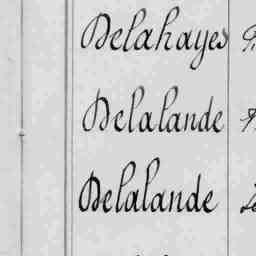 Delahayes
Delalande
Delalande